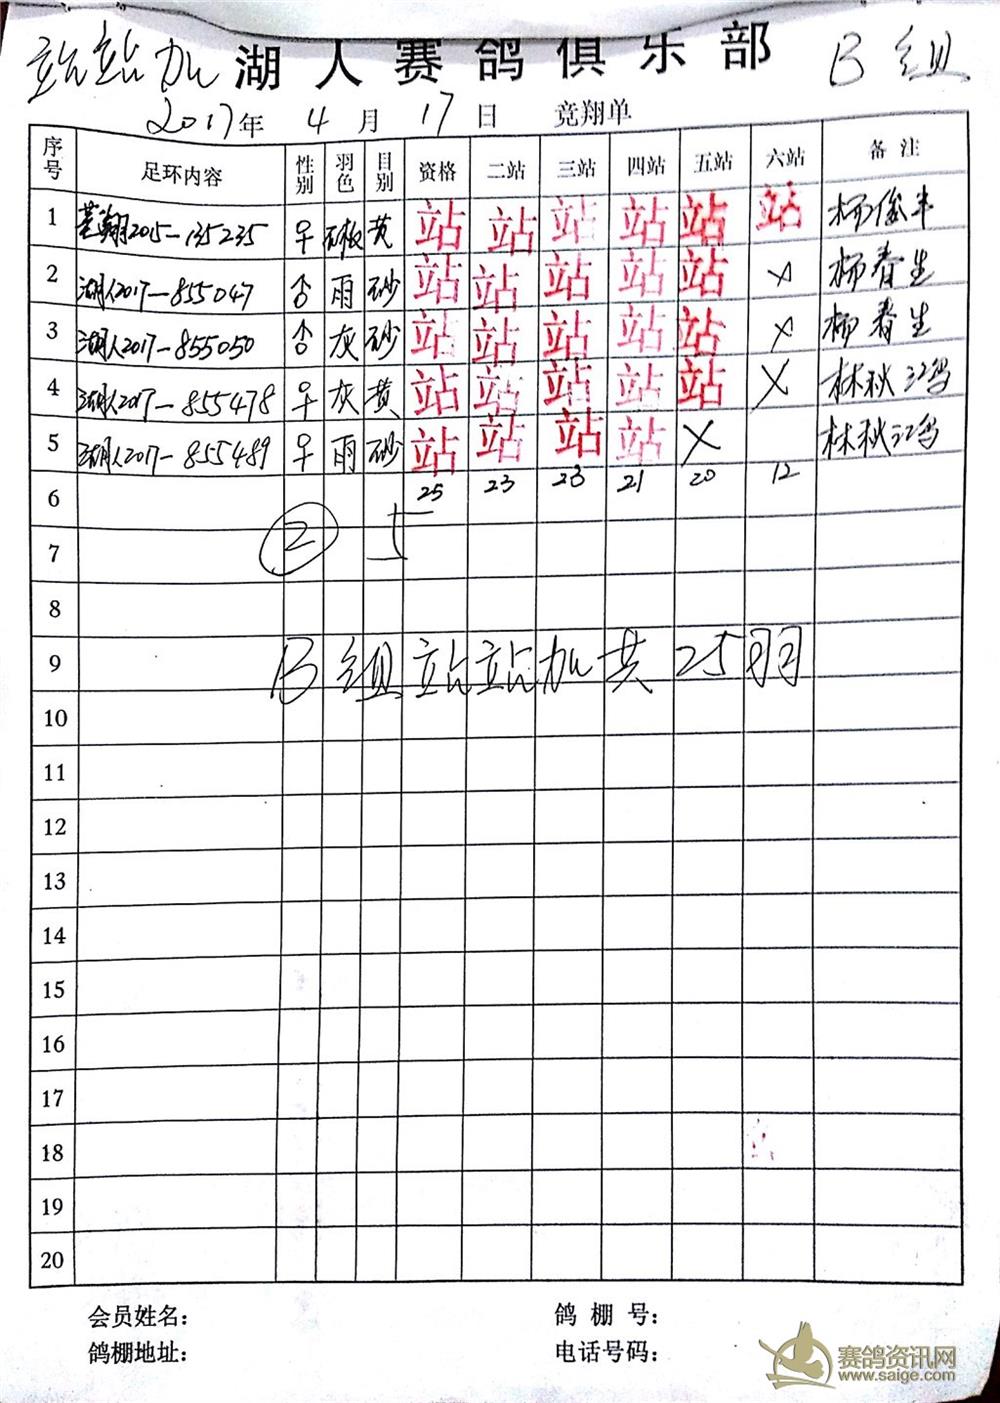 站站加 湖人赛鸽俱乐部 B组
2017年 4月 17日 竞翔单
序号 足环内容 性别 羽色 目别 资格 二站 三站 四站 五站 六站 备注
1 翔2015-135235 ♀ 石板 黄 站 站 站 站 站 站 杨俊丰
2 湖人2017-855047 ♂ 雨 砂 站 站 站 站 站 × 杨春生
3 湖人2017-855050 ♂ 灰 砂 站 站 站 站 站 × 杨春生
4 湖人2017-855478 ♀ 灰 黄 站 站 站 站 站 × 林秋鸿
5 湖人2017-855489 ♀ 雨 砂 站 站 站 站 × 林秋鸿
6 25 23 23 21 20 12
7 ② 5
8
9 B组站站加共25羽
10
11
12
13
14
15
16
17
18
19
20
会员姓名： 鸽棚号：
鸽棚地址： 电话号码：
赛鸽资讯网
www.saige.com